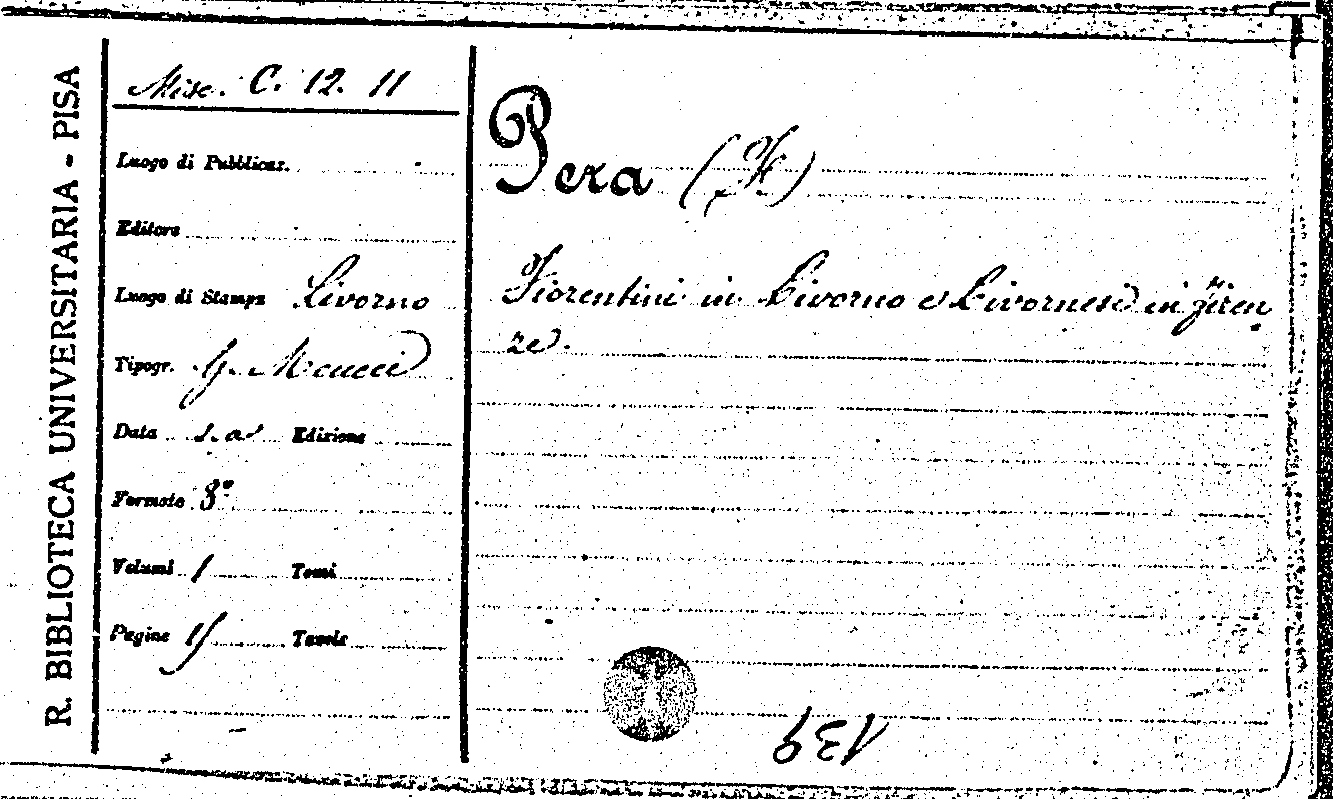 R. BIBLIOTECA UNIVERSITARIA - PISA
Misc. C. 12. 11
Luogo di Pubblicaz.
Editore
Luogo di Stampa Livorno
Tipogr. G. Meucci
Data s. a. Edizione
Formato 8°
Volumi 1 Tomi
Pagine Tavole
Pera (F.)
Fiorentini in Livorno e Livornesi in Firen
ze.
139